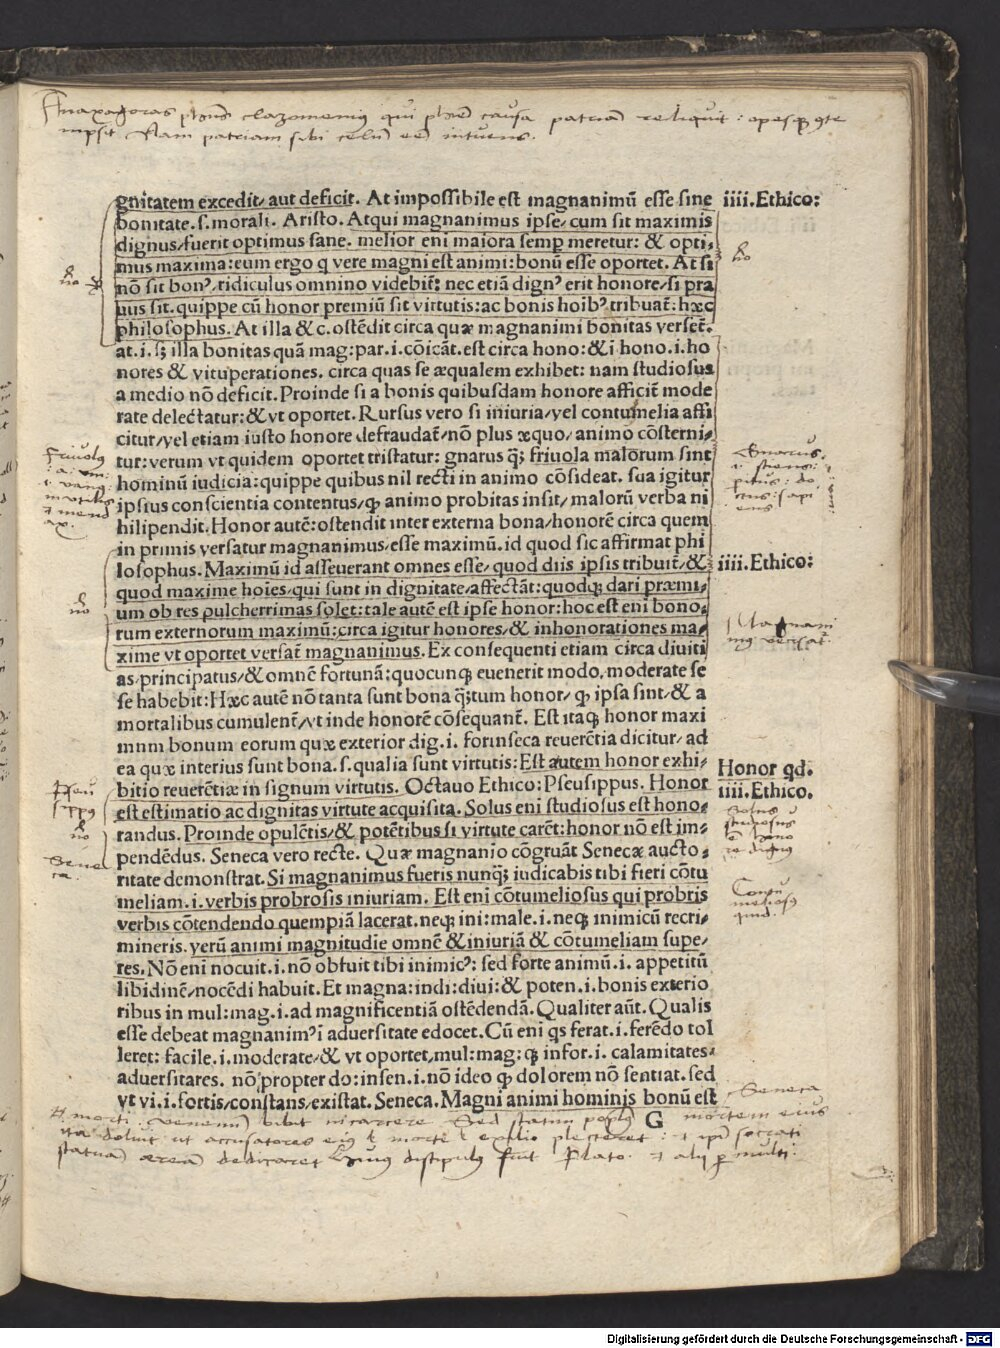 Anaxagoras phūs clazomenius qui phiē causa patriam reliquit : opesqꝫ
Nam patriam sibi celū eē intuens.
gnitatem excedit/ aut deficit. At impossibile est magnanimū esse sine
iiii.Ethico:
bonitate.s.morali. Aristo. Atqui magnanimus ipse/ cum sit maximis
dignus/fuerit optimus sane. melior eni maiora semꝑ meretur: & opti⸗
mus maxima:eum ergo q vere magni est animi:bonū esse oportet. At si
no
no
nō sit bonꝰ/ ridiculus omnino videbit̄: nec etiā dignꝰ erit honore/si pra
uus sit. quippe cū honor premiū sit virtutis:ac bonis hoib̄ꝰ tribuat̄: hæc
philosophus. At illa & c. ostēdit circa quæ magnanimi bonitas verset̄.
at.i.sꝫ illa bonitas quā mag:par.i.cōicāt.est circa hono:& i hono.i.ho
nores & vituperationes. circa quas se æqualem exhibet: nam studiosus
a medio nō deficit. Proinde si a bonis quibusdam honore afficit̄ mode
rate delectatur:& vt oportet. Rursus vero si iniuria/vel contumelia affi
citur/vel etiam iusto honore defraudat̄/nō plus æquo/ animo cōsterni⸗
Friuolꝰ
Gnarus
tur:verum vt quidem oportet tristatur: gnarus qꝫ friuola malorum sint
hominū iudicia:quippe quibus nil recti in animo cōsideat. sua igitur
inutilis
ipsius conscientia contentus/ꝙ animo probitas insit/ malorū verba ni
hilipendit. Honor autē:ostendit inter externa bona/honorē circa quem
in primis versatur magnanimus/esse maximū.id quod sic affirmat phi
losophus. Maximū id asseuerant omnes esse/ quod diis ipsis tribuit̄/&
iiii.Ethico:
quod maxime hoīes/qui sunt in dignitate/affectāt:quodqꝫ dari præmi⸗
no
um ob res pulcherrimas solet:tale autē est ipse honor:hoc est eni bono⸗
rum externorum maximū:circa igitur honores/& inhonorationes ma⸗
Magnani
mꝰ versat̄
xime vt oportet versat̄ magnanimus. Ex consequenti etiam circa diuiti
as/principatus/& omnē fortunā:quocunqꝫ euenerit modo, moderate se
se habebit:Hæc autē nō tanta sunt bona qꝫ;tum honor/ ꝙ ipsa sint/& a
mortalibus cumulent̄/vt inde honorē cōsequant̄. Est itaqꝫ honor maxi
mnm bonum eorum quæ exterior dig.i. forinseca reuerētia dicitur/ ad
ea quæ interius sunt bona.s.qualia sunt virtutis:Est autem honor exhi⸗
Honor qd.
bitio reuerētiæ in signum virtutis. Octauo Ethico:Pseusippus. Honor
iiii.Ethico.
Pseu
sippꝰ
est estimatio ac dignitas virtute acquisita. Solus eni studiosus est hono⸗
Solus
studiosus
no
randus. Proinde opulētis/& potētibus si virtute carēt:honor nō est im⸗
pendēdus. Seneca vero recte. Quæ magnanio cōgruāt Senecæ aucto⸗
Sene
ca.
ritate demonstrat. Si magnanimus fueris nunqꝫ; iudicabis tibi fieri cōtu
meliam.i.verbis probrosis iniuriam. Est eni cōtumeliosus qui probris
Contu
meliosꝰ
quid.
verbis cōtendendo quempiā lacerat.neqꝫ ini:male.i.neqꝫ inimicū recri⸗
mineris. verū animi magnitudie omnē &iniuriā & cōtumeliam supe⸗
res. Nō eni nocuit.i.nō obfuit tibi inimicꝰ: sed forte animū.i. appetitū
libidinē/nocēdi habuit. Et magna:indi:diui:& poten.i.bonis exterio
ribus in mul:mag.i.ad magnificentiā ostēdendā. Qualiter aūt. Qualis
esse debeat magnanimꝰi aduersitate edocet. Cū eni qs ferat.i.ferēdo tol
leret: facile.i.moderate/& vt oportet/mul:mag:qꝫ infor.i. calamitates⸗
aduersitates. nō propter do:insen.i.nō ideo ꝙ dolorem nō sentiat.sed
vt vi.i.fortis/constans/existat. Seneca. Magni animi hominis bonū est
Seneca
G
morti. venenum bibit in carcere Sed statim poplꝰ mortem eius
ita doluit ut accusatores eiꝰ morte exilio plecteret : et ipi socrati
statuam aeream dedicaret Huiꝰ discipulꝰ fuit Plato. et alij ꝑmulti.
Digitalisierung gefördert durch die Deutsche Forschungsgemeinschaft - DFG